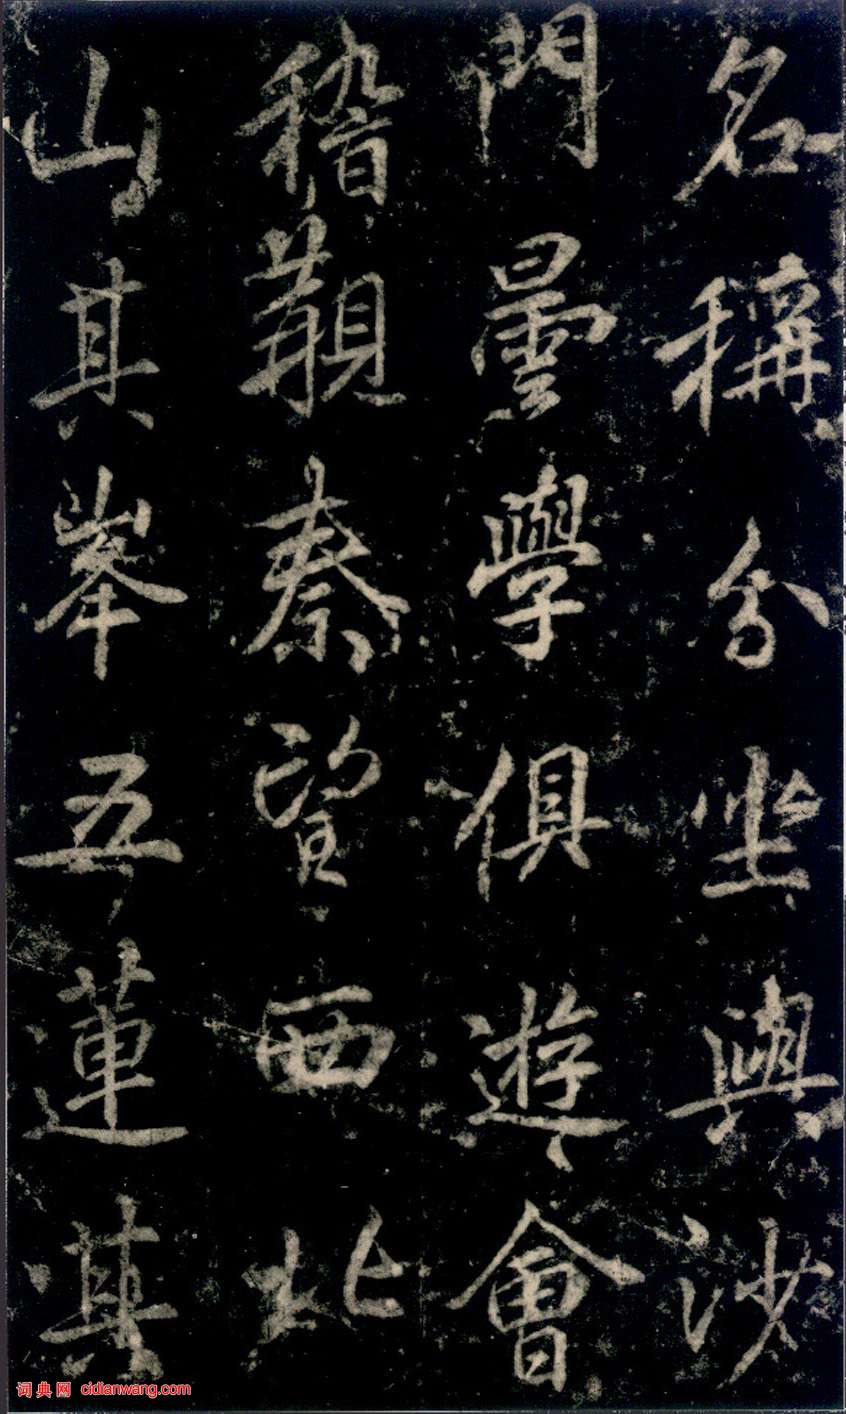 名稱分坐與沙
門曇學俱遊會
稽覯秦望西北
山其峯五蓮其
词典网 cidianwang.com